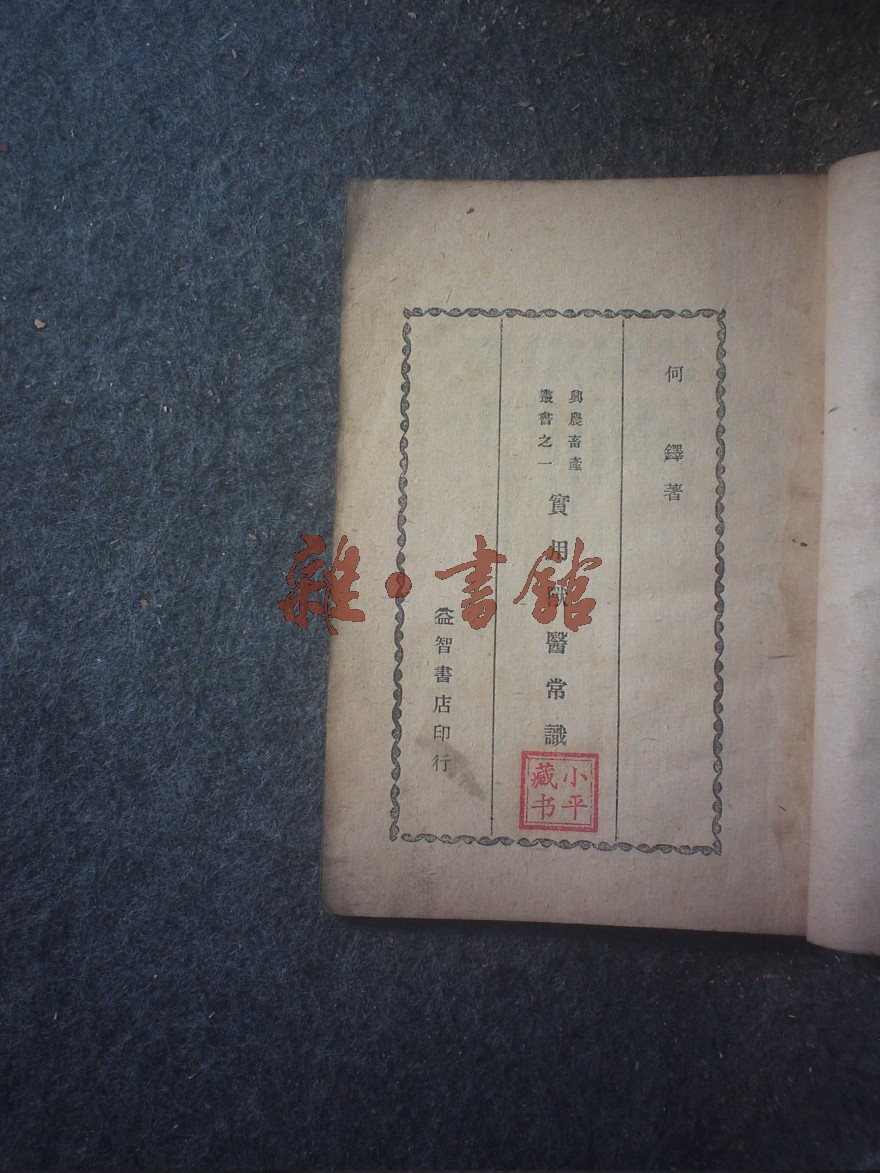 何鐸著
興農畜產
叢書之一
實用獸醫常識
益智書店印行
小平
藏书
雜·書館